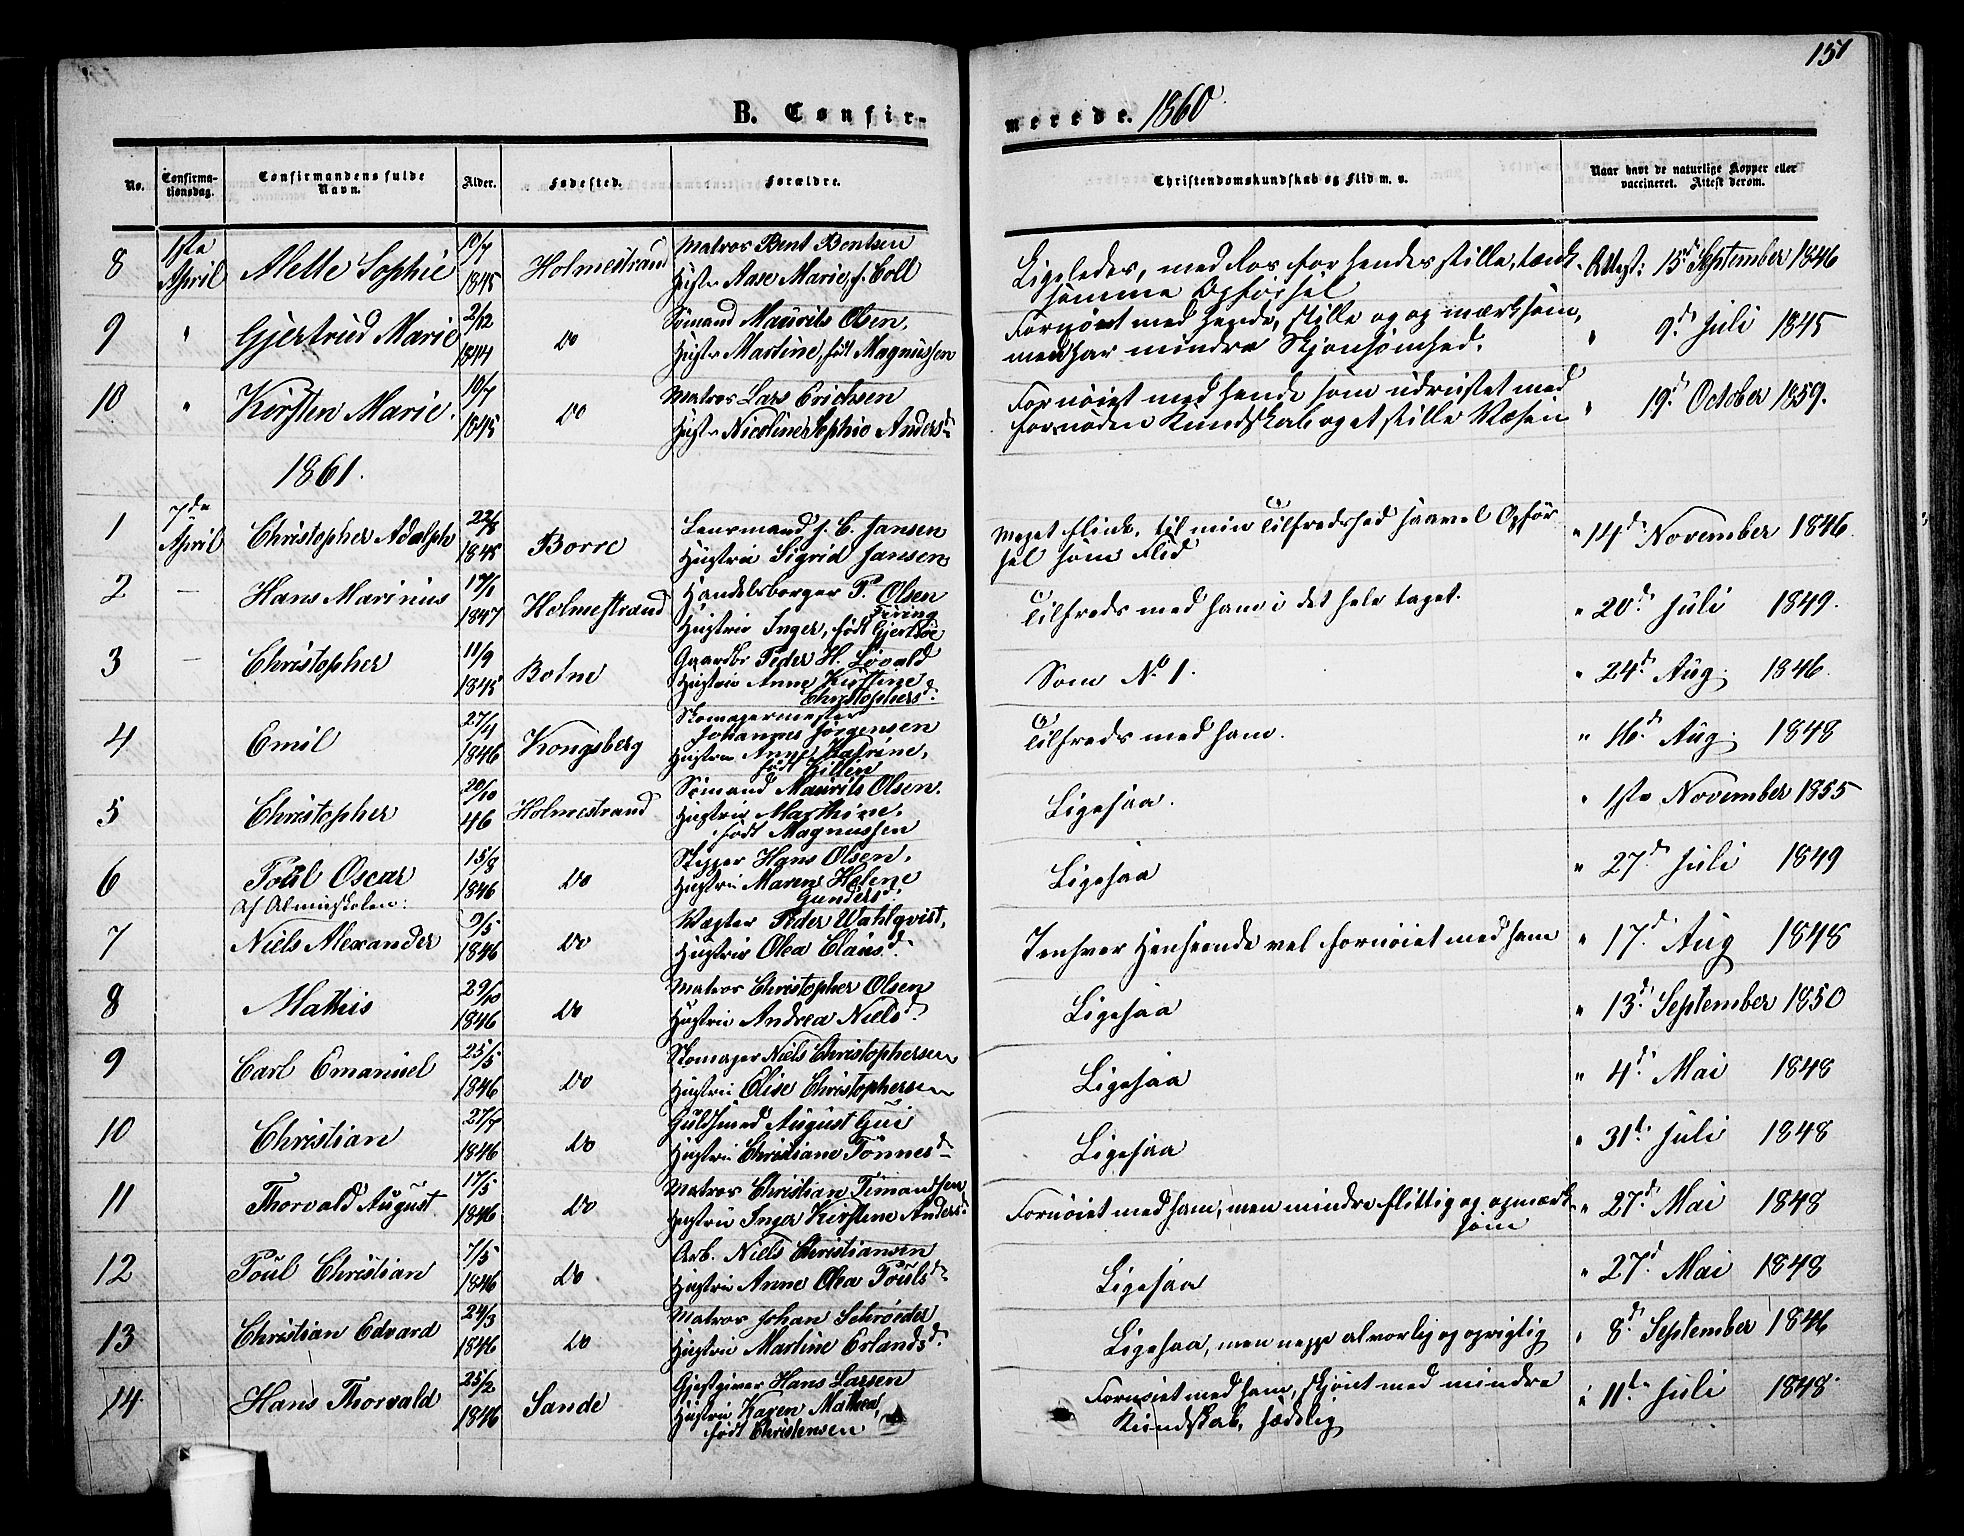 151
B. Confir-
merede. 1860.
No.
Confirma-
tionsdag.
Confirmandens fulde
Navn.
Alder.
Fødested.
Forældre.
Christendomskundskab og Flid m. v.
Naar havt de naturlige Kopper eller
vaccineret. Attest derom.
8 1ste April Alette Sophie 10/7 1845 Holmestrand Matros Bent Bentsen
Hustr Aase Marie, f. Coll
Ligeledes, med Ros for hendes stille, tænk-
somme Opførsel
Attest: 15d September 1846
9 " Gjertrud Marie 2/12 1844 Do Sømand Maurits Olsen,
Hustr Martine, født Magnussen
Fornøiet med hende, stille og opmærksom,
men har mindre Skjønsomhed.
" 9d Juli 1845
10 " Kirsten Marie. 10/7 1845 Do Matros Lars Erichsen
Hustr Nicoline Sophie Andersd.
Fornøiet med hende som udrustet med
fornøden Kundskab og et stille Væsen
" 19d October 1859.
1861.
1 7de April Christopher Adolph 22/8 1845 Borre Lensmand J. C. Jansen
Hustru Sigrid Jansen
Meget flink, til min Tilfredshed saavel Opfør
sel som Flid
" 14d November 1846.
2 — Hans Marinus 17/1 1847 Holmestrand Handelsborger P. Olsen
Firing
Hustru Inger, født Gjertsøe
Tilfreds med ham i det hele taget.
" 20d Juli 1849.
3 — Christopher 11/9 1845 Botne Gaardbr Peder H. Løvald
Hustru Anne Kirstine
Christophersd.
Som No 1.
" 24d Aug. 1846.
4 Emil 27/4 1846 Kongsberg Skomagermester
Johannes Jørgensen
Hustru Anne Katrine,
født Hillin
Tilfreds med ham.
" 16d Aug. 1848
5 Christopher 20/10 46 Holmestrand Sømand Maurits Olsen.
Hustru Marthine,
født Magnussen
Ligesaa.
" 1ste November 1855
6 Poul Oscar 15/8 1846 Do Skipper Hans Olsen,
Hustru Maren Helene
Gundersd.
Ligesaa
" 27d Juli 1849
af Almuskolen:
7 Niels Alexander 9/5 1846 Do Vægter Peder Wahlqvist,
Hustru Olea Clausd.
I enhver Henseende vel fornøiet med ham
" 17d Aug 1848
8 Mathis 29/10 1846 Do Matros Christopher Olsen
Hustru Andrea Nielsd.
Ligesaa
" 13d September 1850
9 Carl Emanuel 25/5 1846 Do Skomager Niels Christophersen
Hustru Elise Christophersen
Ligesaa
" 4d Mai 1848
10 Christian 27/7 1846 Do Guldsmed August Gui
Hustru Christiane Tønnesd.
Ligesaa
" 31d Juli 1848
11 Thorvald August. 17/5 1846 Do Matros Christian Timandsen
Hustru Inger Kirstine Andersd.
Fornøiet med ham, men mindre flittig og opmærk-
som
" 27d Mai 1848
12 Poul Christian 7/5 1846 Do Arb. Niels Christiansen
Hustru Anne Olea Poulsd.
Ligesaa
" 27d Mai 1848
13 Christian Edvard 24/3 1846 Do Matros Johan Schrøeder
Hustru Martine Erlandsd.
Ligesaa, men neppe alvorlig og oprigtig
" 8d September 1846
14. Hans Thorvald 25/2 1846 Sande Gjestgiver Hans Larsen
Hustru Karen Mathea,
født Christensen
Fornøiet med ham, skjønt med mindre
Kundskab, sædelig
" 11d Juli 1848.